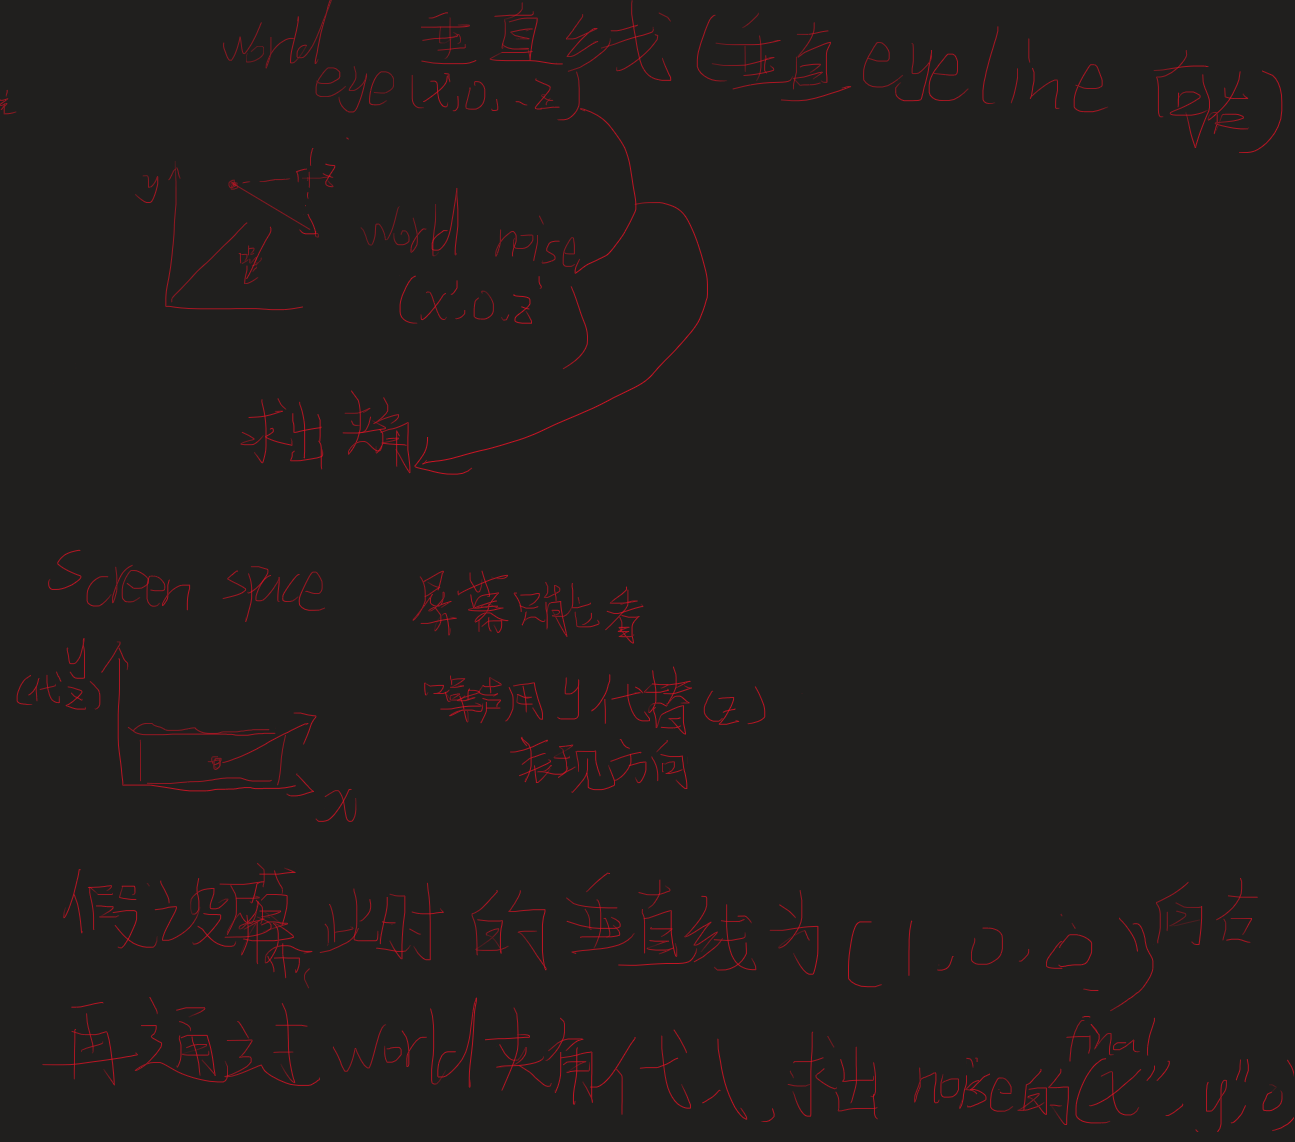 world 垂直线(垂直eyeline 向右)
eye(x',0,-z)
y
z
world noise
(x',0,z'
求出夹角
screen space 屏幕只能看
y
(代z) 噪声用y代替(z)
表现方向
x
假设屏幕此时的垂直线为(1,0,0)向右
再通过world夹角代入,求出noise的(x'',y'',0)
final